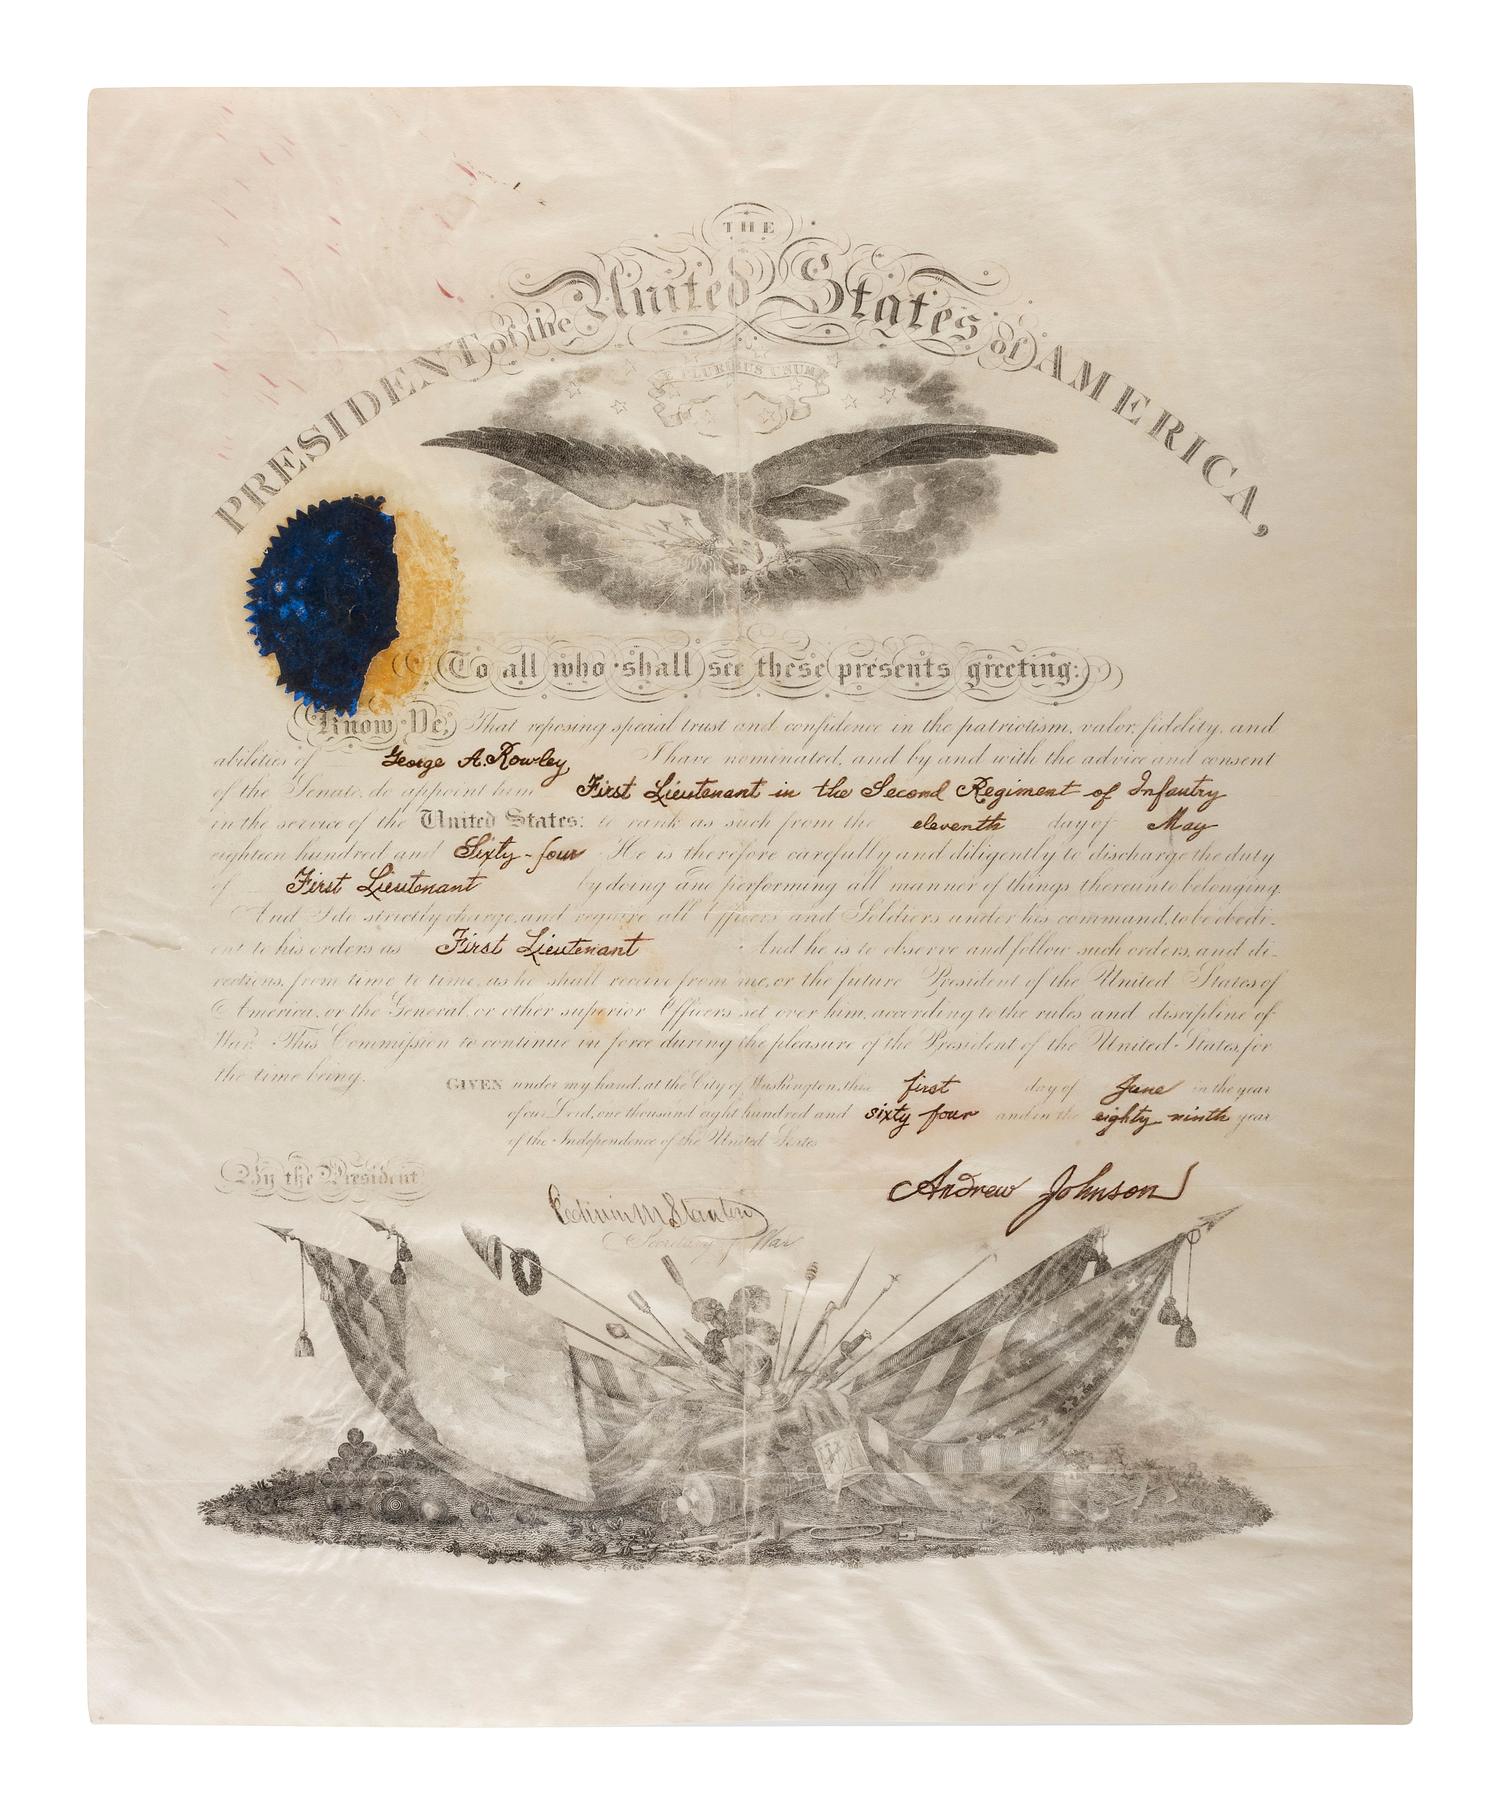 THE
PRESIDENT of the United States of AMERICA,
E PLURIBUS UNUM
To all who shall see these presents greeting:
Know Ye, That reposing special trust and confidence in the patriotism, valor, fidelity, and
abilities of George A. Rowley, I have nominated, and by and with the advice and consent
of the Senate, do appoint him First Lieutenant in the Second Regiment of Infantry
in the service of the United States: to rank as such from the eleventh day of May
eighteen hundred and Sixty-four He is therefore carefully and diligently to discharge the duty
of First Lieutenant by doing and performing all manner of things thereunto belonging.
And I do strictly charge, and require all Officers and Soldiers under his command, to be obedi-
ent to his orders as First Lieutenant And he is to observe and follow such orders, and di-
rections, from time to time, as he shall receive from me, or the future President of the United States of
America, or the General, or other superior Officers set over him, according to the rules and discipline of
War. This Commission to continue in force during the pleasure of the President of the United States, for
the time being.
GIVEN under my hand, at the City of Washington, this first day of June in the year
of our Lord, one thousand eight hundred and sixty four and in the eighty ninth year
of the Independence of the United States
By the President
Andrew Johnson
Edwin M Stanton
Secretary of War